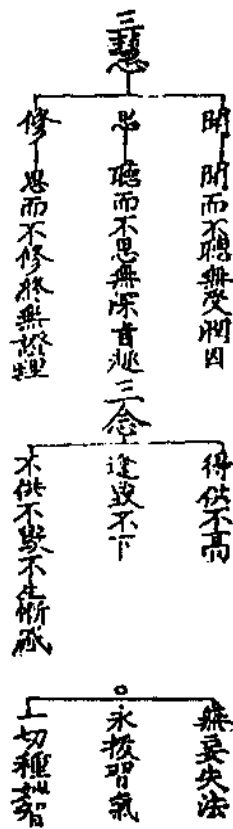 三慧
聞 聞而不聽無受潤因
思 聽而不思無深旨趣
修 思而不修終無證理
三念
得供不高
逢毀不下
不供不毀不生慚
無妄失法
永拔習氣
一切種妙智